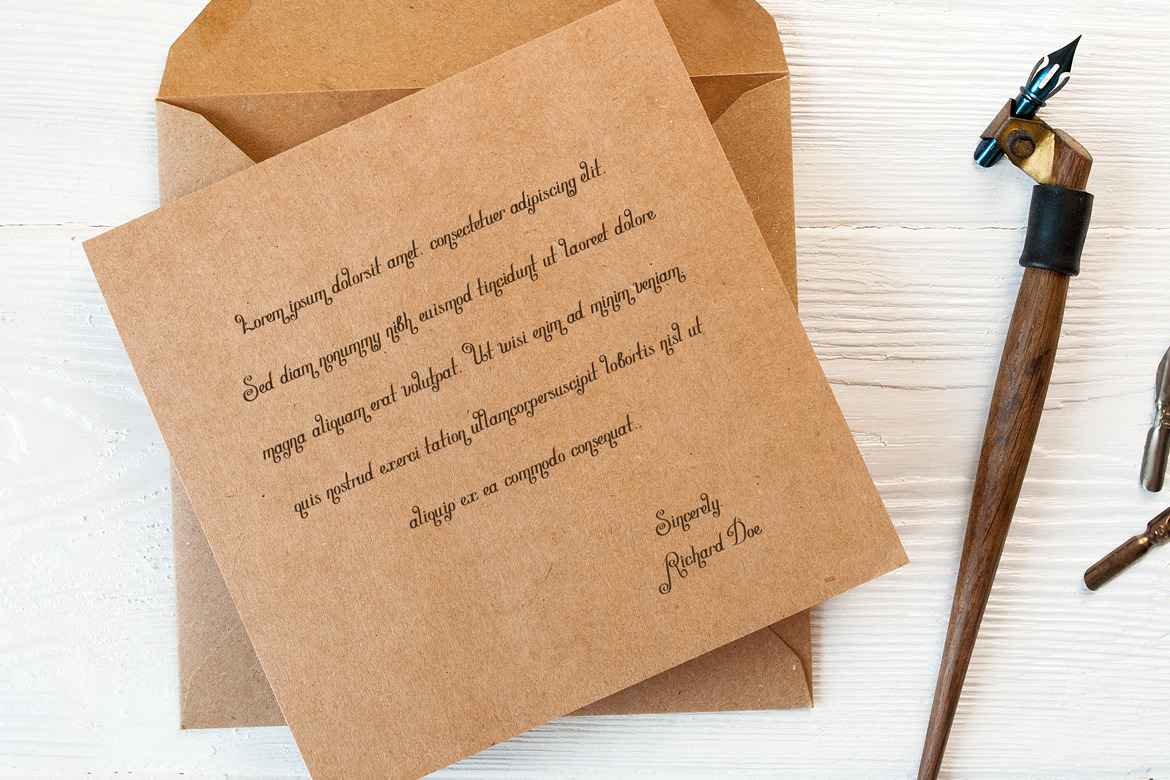 Lorem ipsum dolorsit amet, consectetuer adipiscing elit.
Sed diam nonummy nibh euismod tincidunt ut laoreet dolore
magna aliquam erat volutpat. Ut wisi enim ad minim veniam,
quis nostrud exerci tation ullamcorpersuscipit lobortis nisl ut
aliquip ex ea commodo consequat..
Sincerely,
Richard Doe